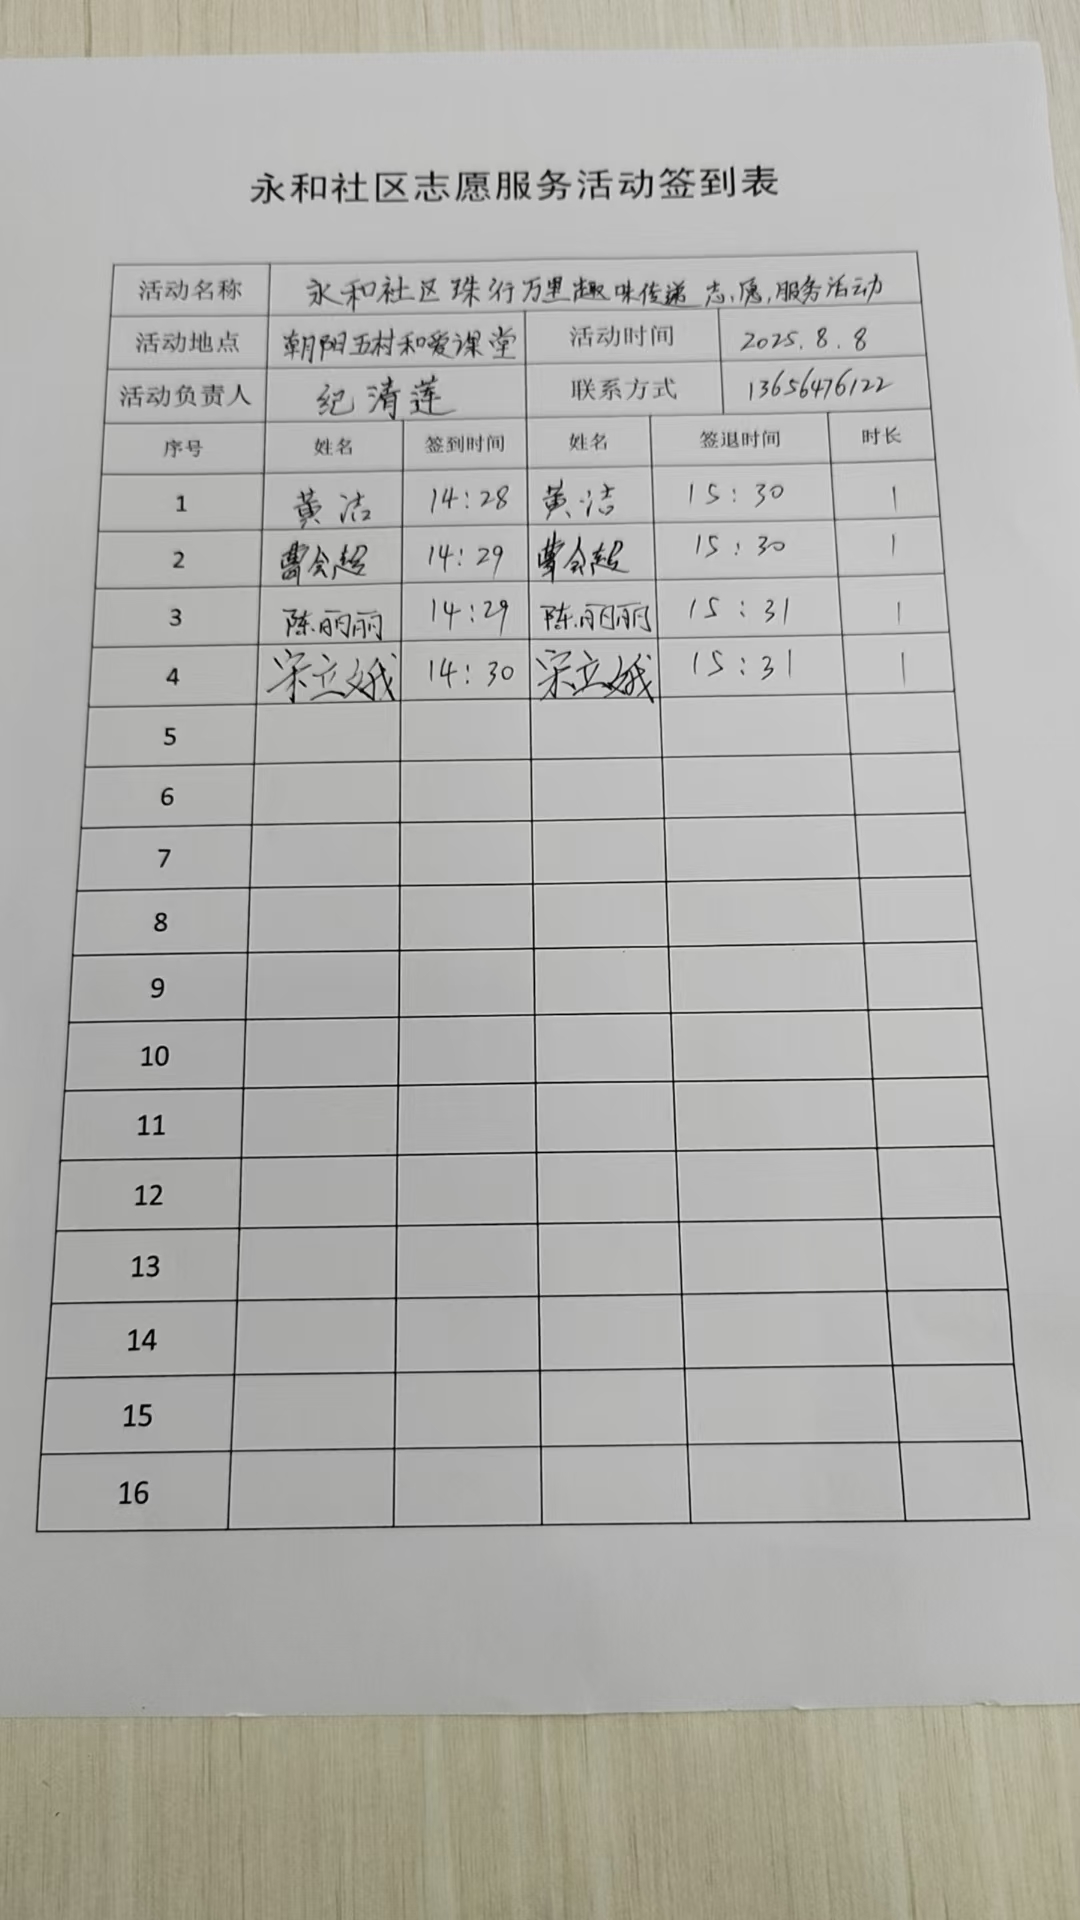 永和社区志愿服务活动签到表
活动名称 永和社区珠行万里趣味传递志愿服务活动
活动地点 朝阳五村和爱课堂 活动时间 2025.8.8
活动负责人 纪清莲 联系方式 13656476122
序号 姓名 签到时间 姓名 签退时间 时长
1 黄洁 14:28 黄洁 15:30 1
2 曹会超 14:29 曹会超 15:30 1
3 陈丽丽 14:29 陈丽丽 15:31 1
4 宋立娥 14:30 宋立娥 15:31 1
5
6
7
8
9
10
11
12
13
14
15
16